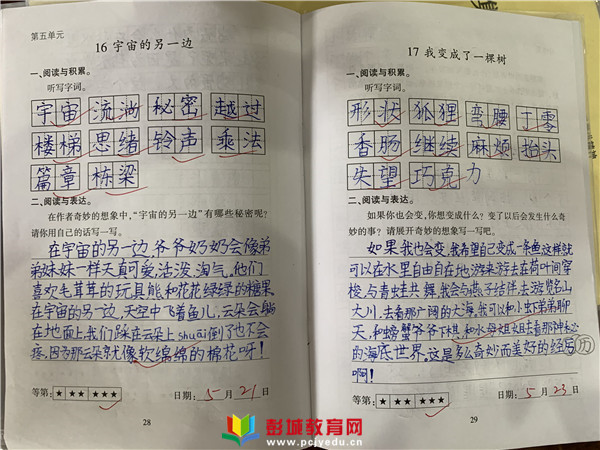 第五单元
16 宇宙的另一边
一、阅读与积累。
听写字词。
宇宙 流淌 秘密 越过
楼梯 思绪 铃声 乘法
篇章 栋梁
二、阅读与表达。
在作者奇妙的想象中，“宇宙的另一边”有哪些秘密呢？
请你用自己的话写一写。
在宇宙的另一边，爷爷奶奶会像弟
弟妹妹一样天真可爱、活泼淘气，他们
喜欢毛茸茸的玩具熊和花花绿绿的糖果。
在宇宙的另一边，天空中飞着鱼儿，云朵会躺
在地面上，我们踩在云朵上shuāi倒了也不会
疼，因为那云朵就像软绵绵的棉花呀！
等第：★ ★★ ★★★ 日期：5月21日
28
17 我变成了一棵树
一、阅读与积累。
听写字词。
形状 狐狸 弯腰 丁零
香肠 继续 麻烦 抬头
失望 巧克力
二、阅读与表达。
如果你也会变，你想变成什么？变了以后会发生什么奇
妙的事？请展开奇妙的想象写一写吧。
如果我也会变，我希望自己变成一条鱼，这样就
可以在水里自由自在地游来游去，在荷叶间穿
梭，与青蛙共舞，我会与燕子结伴去游览名山
大川，去看那广阔的大海，我可以和小虾弟弟聊
天，和螃蟹爷爷下棋，和水母姐姐去看那神秘
的海底世界，这是多么奇妙而美好的经历
啊！
历
等第：★ ★★ ★★★ 日期：5月23日
29
彭城教育网
www.pcjyedu.cn